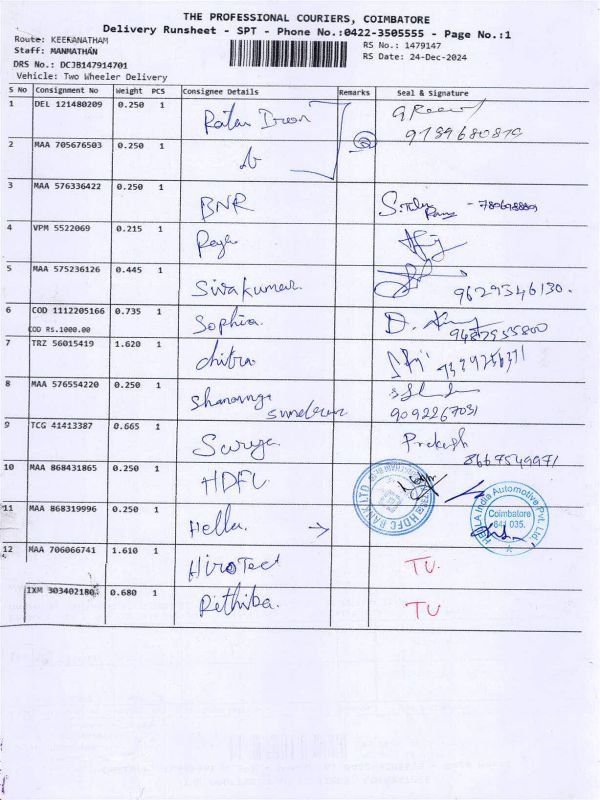 THE PROFESSIONAL COURIERS, COIMBATORE
Delivery Runsheet - SPT - Phone No.:0422-3505555 - Page No.:1
Route: KEERANATHAM
Staff: MANMATHAN
RS No.: 1479147
RS Date: 24-Dec-2024
DRS No.: DCJB147914701
Vehicle: Two Wheeler Delivery
S No Consignment No Weight PCS Consignee Details Remarks Seal & Signature
1 DEL 121480209 0.250 1
9789680879
2 MAA 705676503 0.250 1
3 MAA 576336422 0.250 1 BNR
4 VPM 5522069 0.215 1 Raga
5 MAA 575236126 0.445 1 Sivakumar.
9629346130.
6 COD 1112205166 0.735 1 Sophia.
COD Rs.1000.00
7 TRZ 56015419 1.620 1 chitra
8 MAA 576554220 0.250 1
sunderam 9092267031
9 TCG 41413387 0.665 1 Surya Prakash
8667549971
10 MAA 868431865 0.250 1 HDFC
HDFC BANK LTD
11 MAA 868319996 0.250 1 Hella.
HELLA India Automotive Pvt. Ltd.
Coimbatore
641 035.
12 MAA 706066741 1.610 1 HiroTec TU.
IXM 303402180 0.680 1 Rithiba. TU